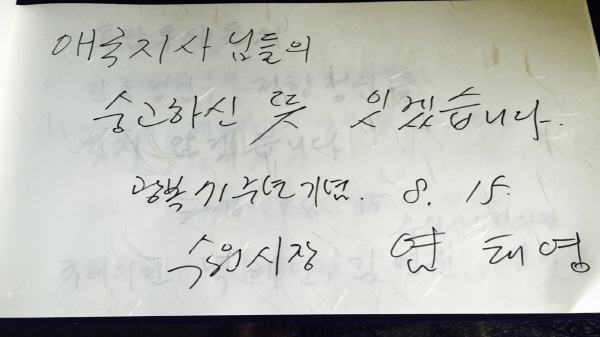 애국지사님들의
숭고하신 뜻 잇겠습니다.
광복 71주년 기념. 8. 15.
수원시장 염태영